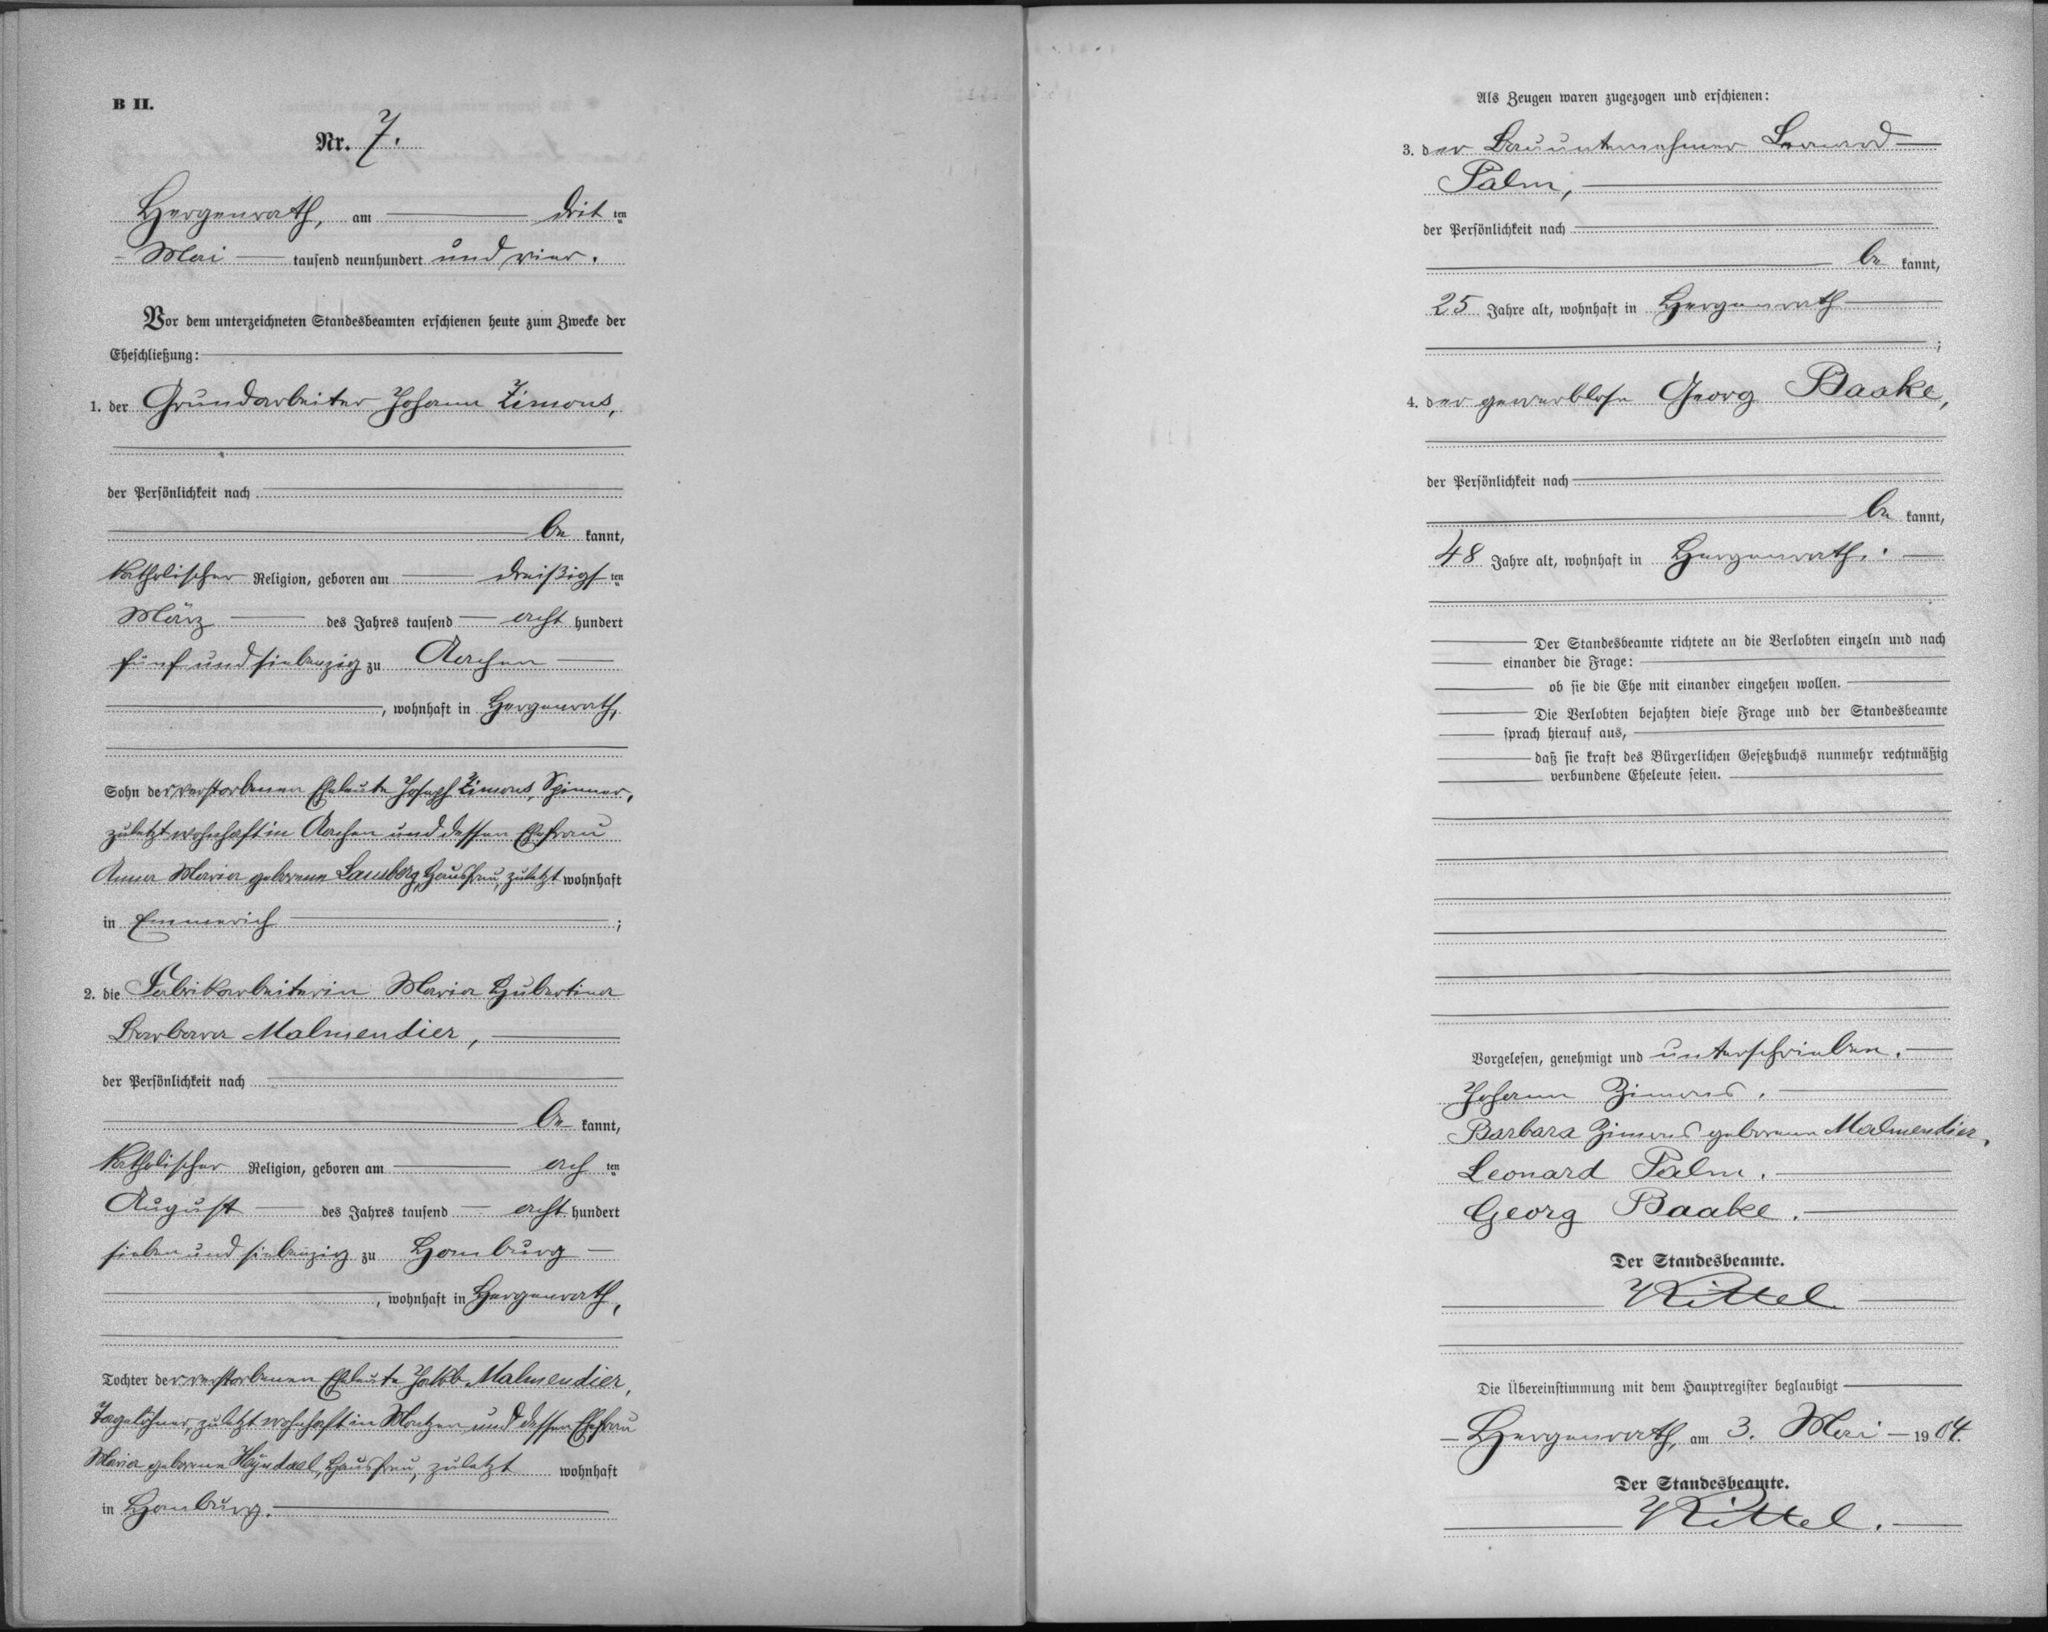 B II.
Nr. 7.
Hergenrath, am dritten
Mai tausend neunhundert und vier.
Vor dem unterzeichneten Standesbeamten erschienen heute zum Zwecke der
Eheschließung:
1. der Grundarbeiter Johann Zimons,
der Persönlichkeit nach
bekannt,
katholischer Religion, geboren am dreißigsten
März des Jahres tausend acht hundert
fünf und siebenzig zu Aachen
, wohnhaft in Hergenrath,
Sohn der verstorbenen Eheleute Joseph Zimons, Spinner,
zuletzt wohnhaft in Aachen und dessen Ehefrau
Anna Maria geborene Lamberg, Hausfrau, zuletzt wohnhaft
in Emmerich ;
2. die Fabrikarbeiterin Maria Hubertina
Barbara Malmendier,
der Persönlichkeit nach
bekannt,
katholischer Religion, geboren am achten
August des Jahres tausend acht hundert
sieben und siebenzig zu Homburg
, wohnhaft in Hergenrath,
Tochter der verstorbenen Eheleute Jakob Malmendier,
Tagelöhner, zuletzt wohnhaft in Montzen und dessen Ehefrau
Maria geborene Heyndael, Hausfrau, zuletzt wohnhaft
in Homburg.
Als Zeugen waren zugezogen und erschienen:
3. der Bauunternehmer Leonard
Palm,
der Persönlichkeit nach
bekannt,
25 Jahre alt, wohnhaft in Hergenrath
;
4. der gewerblose Georg Baake,
der Persönlichkeit nach
bekannt,
48 Jahre alt, wohnhaft in Hergenrath.
Der Standesbeamte richtete an die Verlobten einzeln und nach
einander die Frage:
ob sie die Ehe mit einander eingehen wollen.
Die Verlobten bejahten diese Frage und der Standesbeamte
sprach hierauf aus,
daß sie kraft des Bürgerlichen Gesetzbuchs nunmehr rechtmäßig
verbundene Eheleute seien.
Vorgelesen, genehmigt und unterschrieben.
Johann Zimons.
Barbara Zimons geborene Malmendier.
Leonard Palm.
Georg Baake.
Der Standesbeamte.
Kittel.
Die Übereinstimmung mit dem Hauptregister beglaubigt
Hergenrath, am 3. Mai 1904.
Der Standesbeamte.
Kittel.